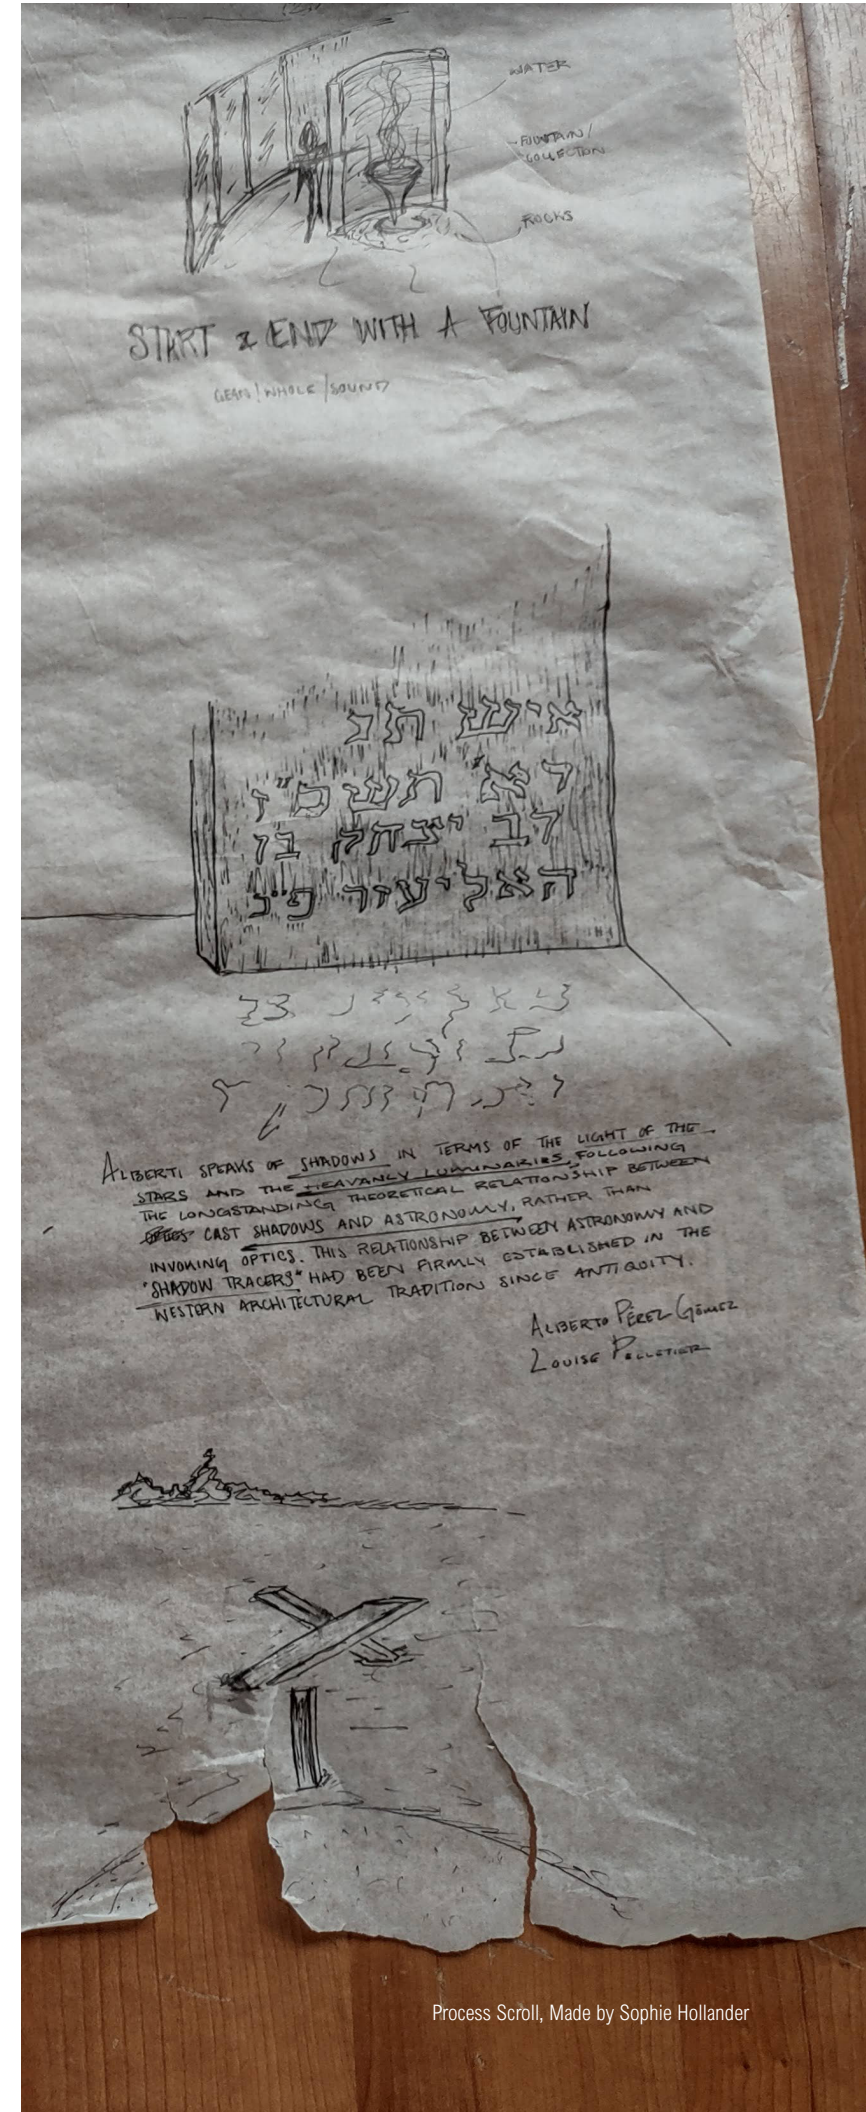 WATER
FOUNTAIN/
COLLECTION
ROCKS
START & END WITH A FOUNTAIN
/WHOLE/SOUND
איש תנ
רא תשס"ז
לב יצחק בן
האליעזר פ"נ
ALBERTI SPEAKS OF SHADOWS IN TERMS OF THE LIGHT OF THE
STARS AND THE HEAVANLY LUMINARIES, FOLLOWING
THE LONGSTANDING THEORETICAL RELATIONSHIP BETWEEN
CAST SHADOWS AND ASTRONOMY, RATHER THAN
INVOKING OPTICS. THIS RELATIONSHIP BETWEEN ASTRONOMY AND
"SHADOW TRACERS" HAD BEEN FIRMLY ESTABLISHED IN THE
WESTERN ARCHITECTURAL TRADITION SINCE ANTIQUITY.
ALBERTO PÉREZ GÓMEZ
LOUISE PELLETIER
Process Scroll, Made by Sophie Hollander